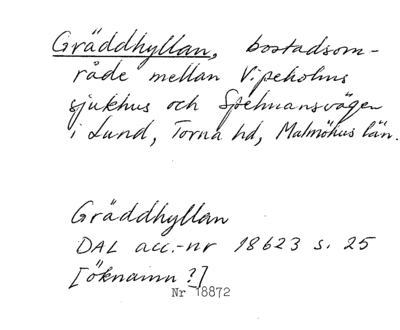 Gräddhyllan, bostadsom-
råde mellan Vipeholms
sjukhus och Spelmansvägen
i Lund, Torna hd, Malmöhus län.
Gräddhyllan
DAL acc.-nr 18623 s. 25
[öknamn?]
Nr 18872